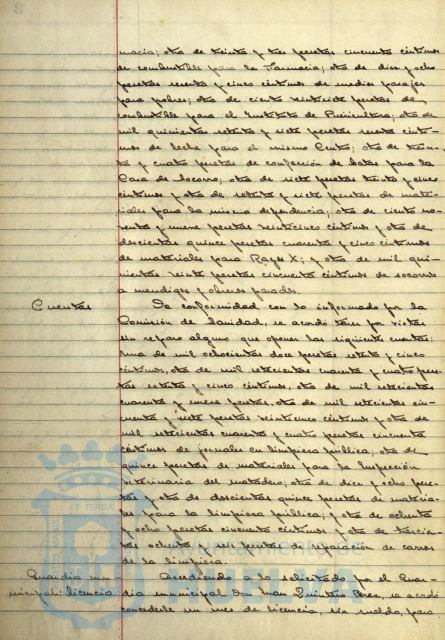 macia; otra de treinta y tres pesetas cincuenta céntimos
de combustible para la Farmacia; otra de diez y ocho
pesetas y cinco céntimos de medios pasajes
para pobres; otra de ciento veintisiete pesetas de
combustible para el Instituto de Puericultura; otra de
mil quinientas setenta y siete pesetas cénti-
mos de leche para el mismo Centro; otra de trein-
ta y cuatro pesetas de confección de batas para la
Casa de Socorro; otra de siete pesetas treinta y cinco
céntimos y otra de setenta y siete pesetas de mate-
riales para la misma dependencia; otra de ciento no-
venta y nueve pesetas veinticinco céntimos y otra de
doscientas quince pesetas cuarenta y cinco céntimos
de materiales para Rayos X; y otra de mil qui-
nientas veinte pesetas cincuenta céntimos de socorros
a mendigos y obreros parados.
Cuentas
De conformidad con lo informado por la
Comisión de Sanidad, se acordó tener por vistas
sin reparo alguno que oponer las siguientes cuentas:
Una de mil ochocientas doce pesetas setenta y cinco
céntimos, otra de mil setecientas cuarenta y cuatro pese-
tas setenta y cinco céntimos, otra de mil setecientas
cuarenta y nueve pesetas, otra de mil setecientas cin-
cuenta y siete pesetas veinticinco céntimos y otra de
mil setecientas cuarenta y cuatro pesetas cincuenta
céntimos de jornales en limpieza pública; otra de
quince pesetas de materiales para la Inspección
Veterinaria del matadero; otra de diez y ocho pese-
tas y otra de doscientas quince pesetas de materia-
les para la limpieza pública; y otra de ochenta
y ocho pesetas cincuenta céntimos y otra de trescien-
tas ochenta y seis pesetas de reparación de carros
de la limpieza.
Guardia mu-
nicipal: licencia
Accediendo a lo solicitado por el Guar-
dia municipal Don Juan Quintero Pérez, se acordó
concederle un mes de licencia, sin sueldo, para